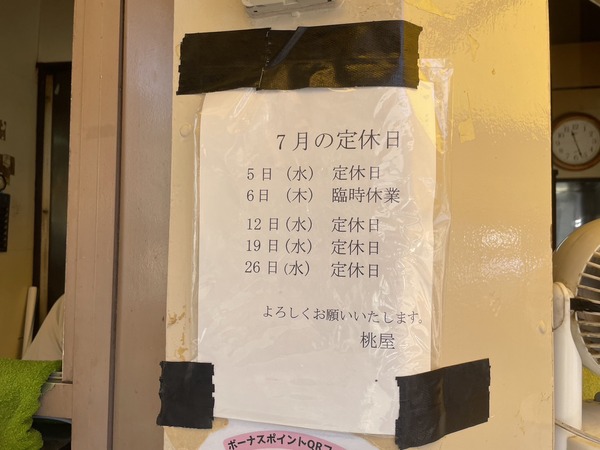 7月の定休日
5日（水） 定休日
6日（木） 臨時休業
12日（水） 定休日
19日（水） 定休日
26日（水） 定休日
よろしくお願いいたします。
桃屋
ボーナスポイントQR